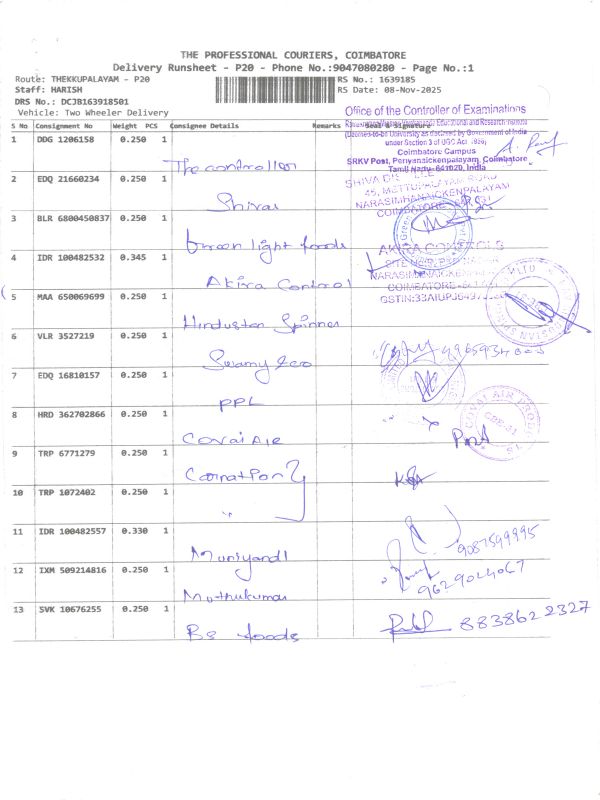 THE PROFESSIONAL COURIERS, COIMBATORE
Delivery Runsheet - P20 - Phone No.:9047080280 - Page No.:1
Route: THEKKUPALAYAM - P20 RS No.: 1639185
Staff: HARISH RS Date: 08-Nov-2025
DRS No.: DCJB163918501
Vehicle: Two Wheeler Delivery
Office of the Controller of Examinations
S No Consignment No Weight PCS Consignee Details Remarks Seal & Signature
(Deemed-to-be University as declared by Government of India
under Section 3 of UGC Act 1956)
Coimbatore Campus
SRKV Post, Periyanaickenpalayam, Coimbatore
Tamil Nadu-641020, India
1 DDG 1206158 0.250 1 The controller
2 EDQ 21660234 0.250 1 Shivai
45, METTUPALAYAM ROAD
NARASIMHANAICKENPALAYAM
3 BLR 6800450837 0.250 1 Green light foods
4 IDR 100482532 0.345 1 Akira Control
AKIRA CONTROLS
5 MAA 650069699 0.250 1 Hindustan Spinner
6 VLR 3527219 0.250 1
7 EDQ 16810157 0.250 1 PPL
8 HRD 362702866 0.250 1 Covai Air
COVAI AIR
9 TRP 6771279 0.250 1
10 TRP 1072402 0.250 1 "
11 IDR 100482557 0.330 1 Muniyandi
9087599995
12 IXM 509214816 0.250 1 Muthukumar
9629024067
13 SVK 10676255 0.250 1 BS foods
8838622327